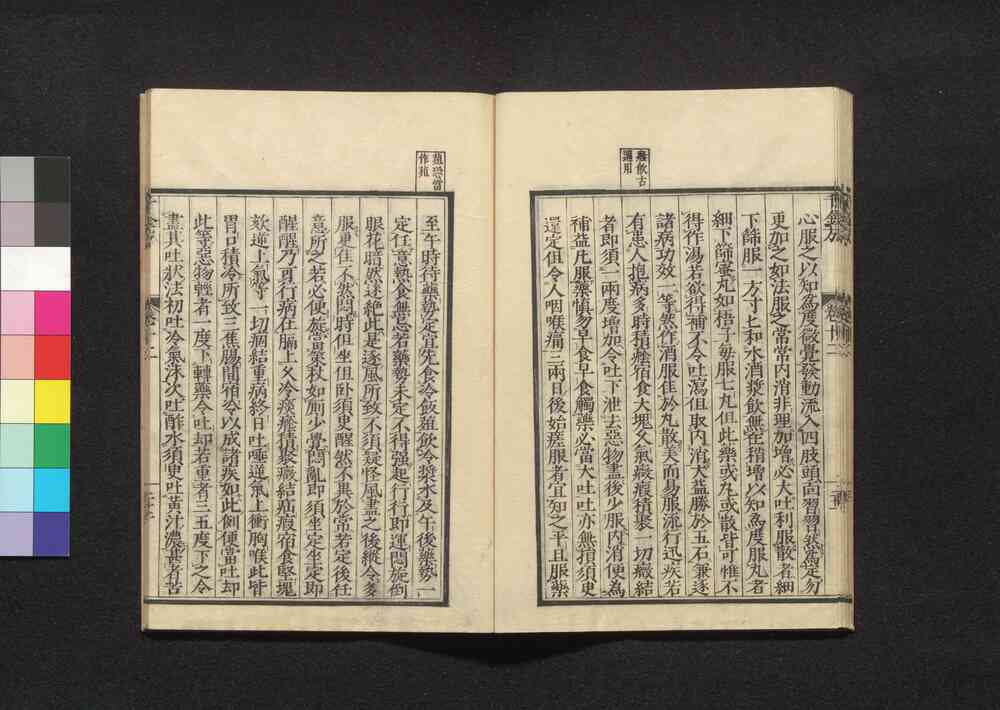 心服之以知為度微覺發動流入四肢頭面習習然當定勿
更加之如法服之常常內消非理加增必大吐利服散者細
下篩服一方寸匕和水酒漿飲無在稍增以知為度服丸者
細下篩蜜丸如梧子每服七丸但此藥或丸或散皆可惟不
得作湯若欲得補不令吐瀉但取內消大益勝於五石兼逐
諸病功效一等然作酒服佳於丸散美而易服流行迅疾若
有患人抱病多時積痰宿食大塊久氣癥瘕積聚一切癥結
者即須一兩度增加令吐下泄去惡物盡後少服內消便為
補益凡服藥慎勿早食早食觸藥必當大吐吐亦無損須臾
還定但令人咽喉痛三兩日後始瘥服者宜知之平旦服藥
至午時待藥勢定宜先食冷飯葅飲冷漿水及午後藥勢一
定任意熱食無忌若藥勢未定不得强起行行即運悶旋倒
眼花暗然迷絕此是逐風所致不須疑怪風盡之後縱令多
服更佳不然悶時但坐但臥須臾醒然不異於常若定後任
意所之若必便旋當策杖如廁少覺悶亂即須坐定坐定即
醒醒乃可行病在膈上久冷痰癊積聚癥結疝瘕宿食堅塊
欬逆上氣等一切痼結重病終日吐唾逆氣上衝胸喉此皆
胃口積冷所致三焦腸間宿冷以成諸疾如此例便當吐却
此等惡物輕者一度下轉藥令吐却若重者三五度下之令
盡其吐狀法初吐冷氣沬次吐酢水須臾吐黄汁濃甚者苦